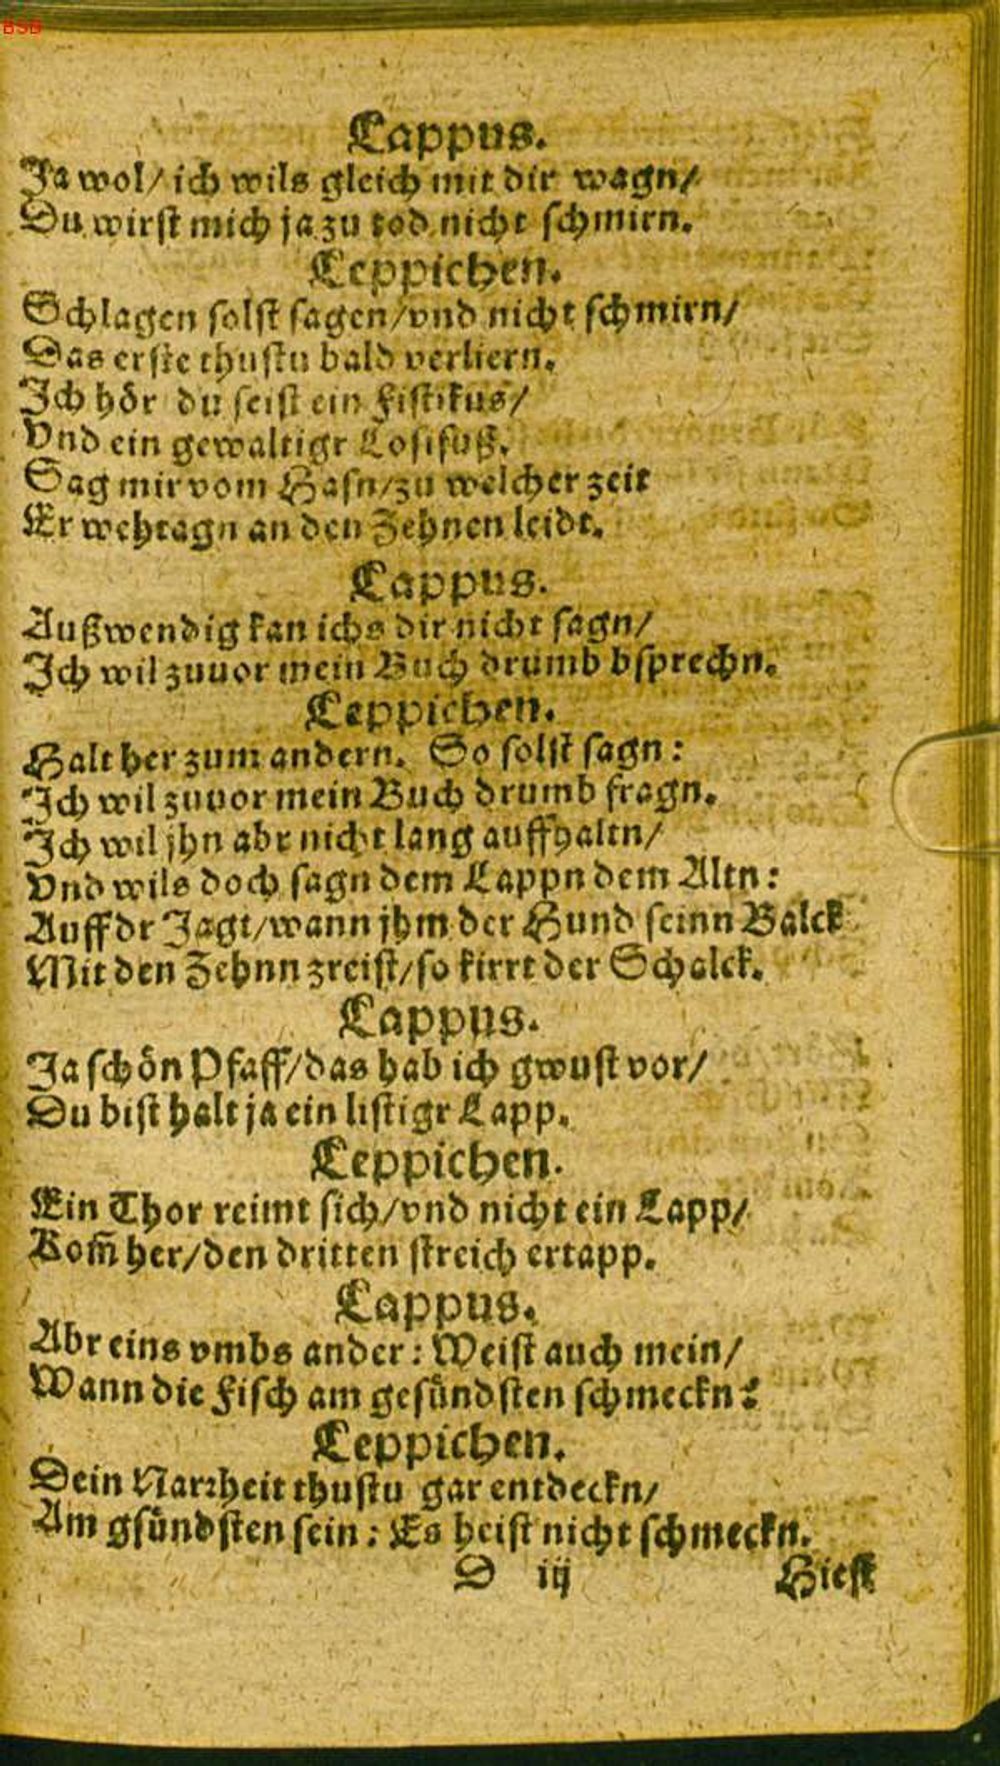 BSB
Lappus.
Ja wol/ ich wils gleich mit dir wagn/
Du wirst mich ja zu tod nicht schmirn.
Leppichen.
Schlagen solst sagen/vnd nicht schmirn/
Das erste thustu bald verliern.
Ich hör du seist ein Fistikus/
Vnd ein gewaltigr Losifuß.
Sag mir vom Hasn/zu welcher zeit
Er wehtagn an den Zehnen leidt.
Lappus.
Außwendig kan ichs dir nicht sagn/
Ich wil zuuor mein Buch drumb bsprechn.
Leppichen.
Halt her zum andern. So solst sagn:
Ich wil zuuor mein Buch drumb fragn.
Ich wil jhn abr nicht lang auffhaltn/
Vnd wils doch sagn dem Lappn dem Altn:
Auff dr Jagt/wann jhm der Hund seinn Balck
Mit den Zehnn zreist/so kirrt der Schalck.
Lappus.
Ja schön Pfaff/das hab ich gwust vor/
Du bist halt ja ein listigr Lapp.
Leppichen.
Ein Thor reimt sich/vnd nicht ein Lapp/
Kom̃ her/den dritten streich ertapp.
Lappus.
Abr eins vmbs ander: Weist auch mein/
Wann die Fisch am gesündsten schmeckn?
Leppichen.
Dein Narrheit thustu gar entdeckn/
Am gsündsten sein: Es heist nicht schmeckn.
D iij Hiest